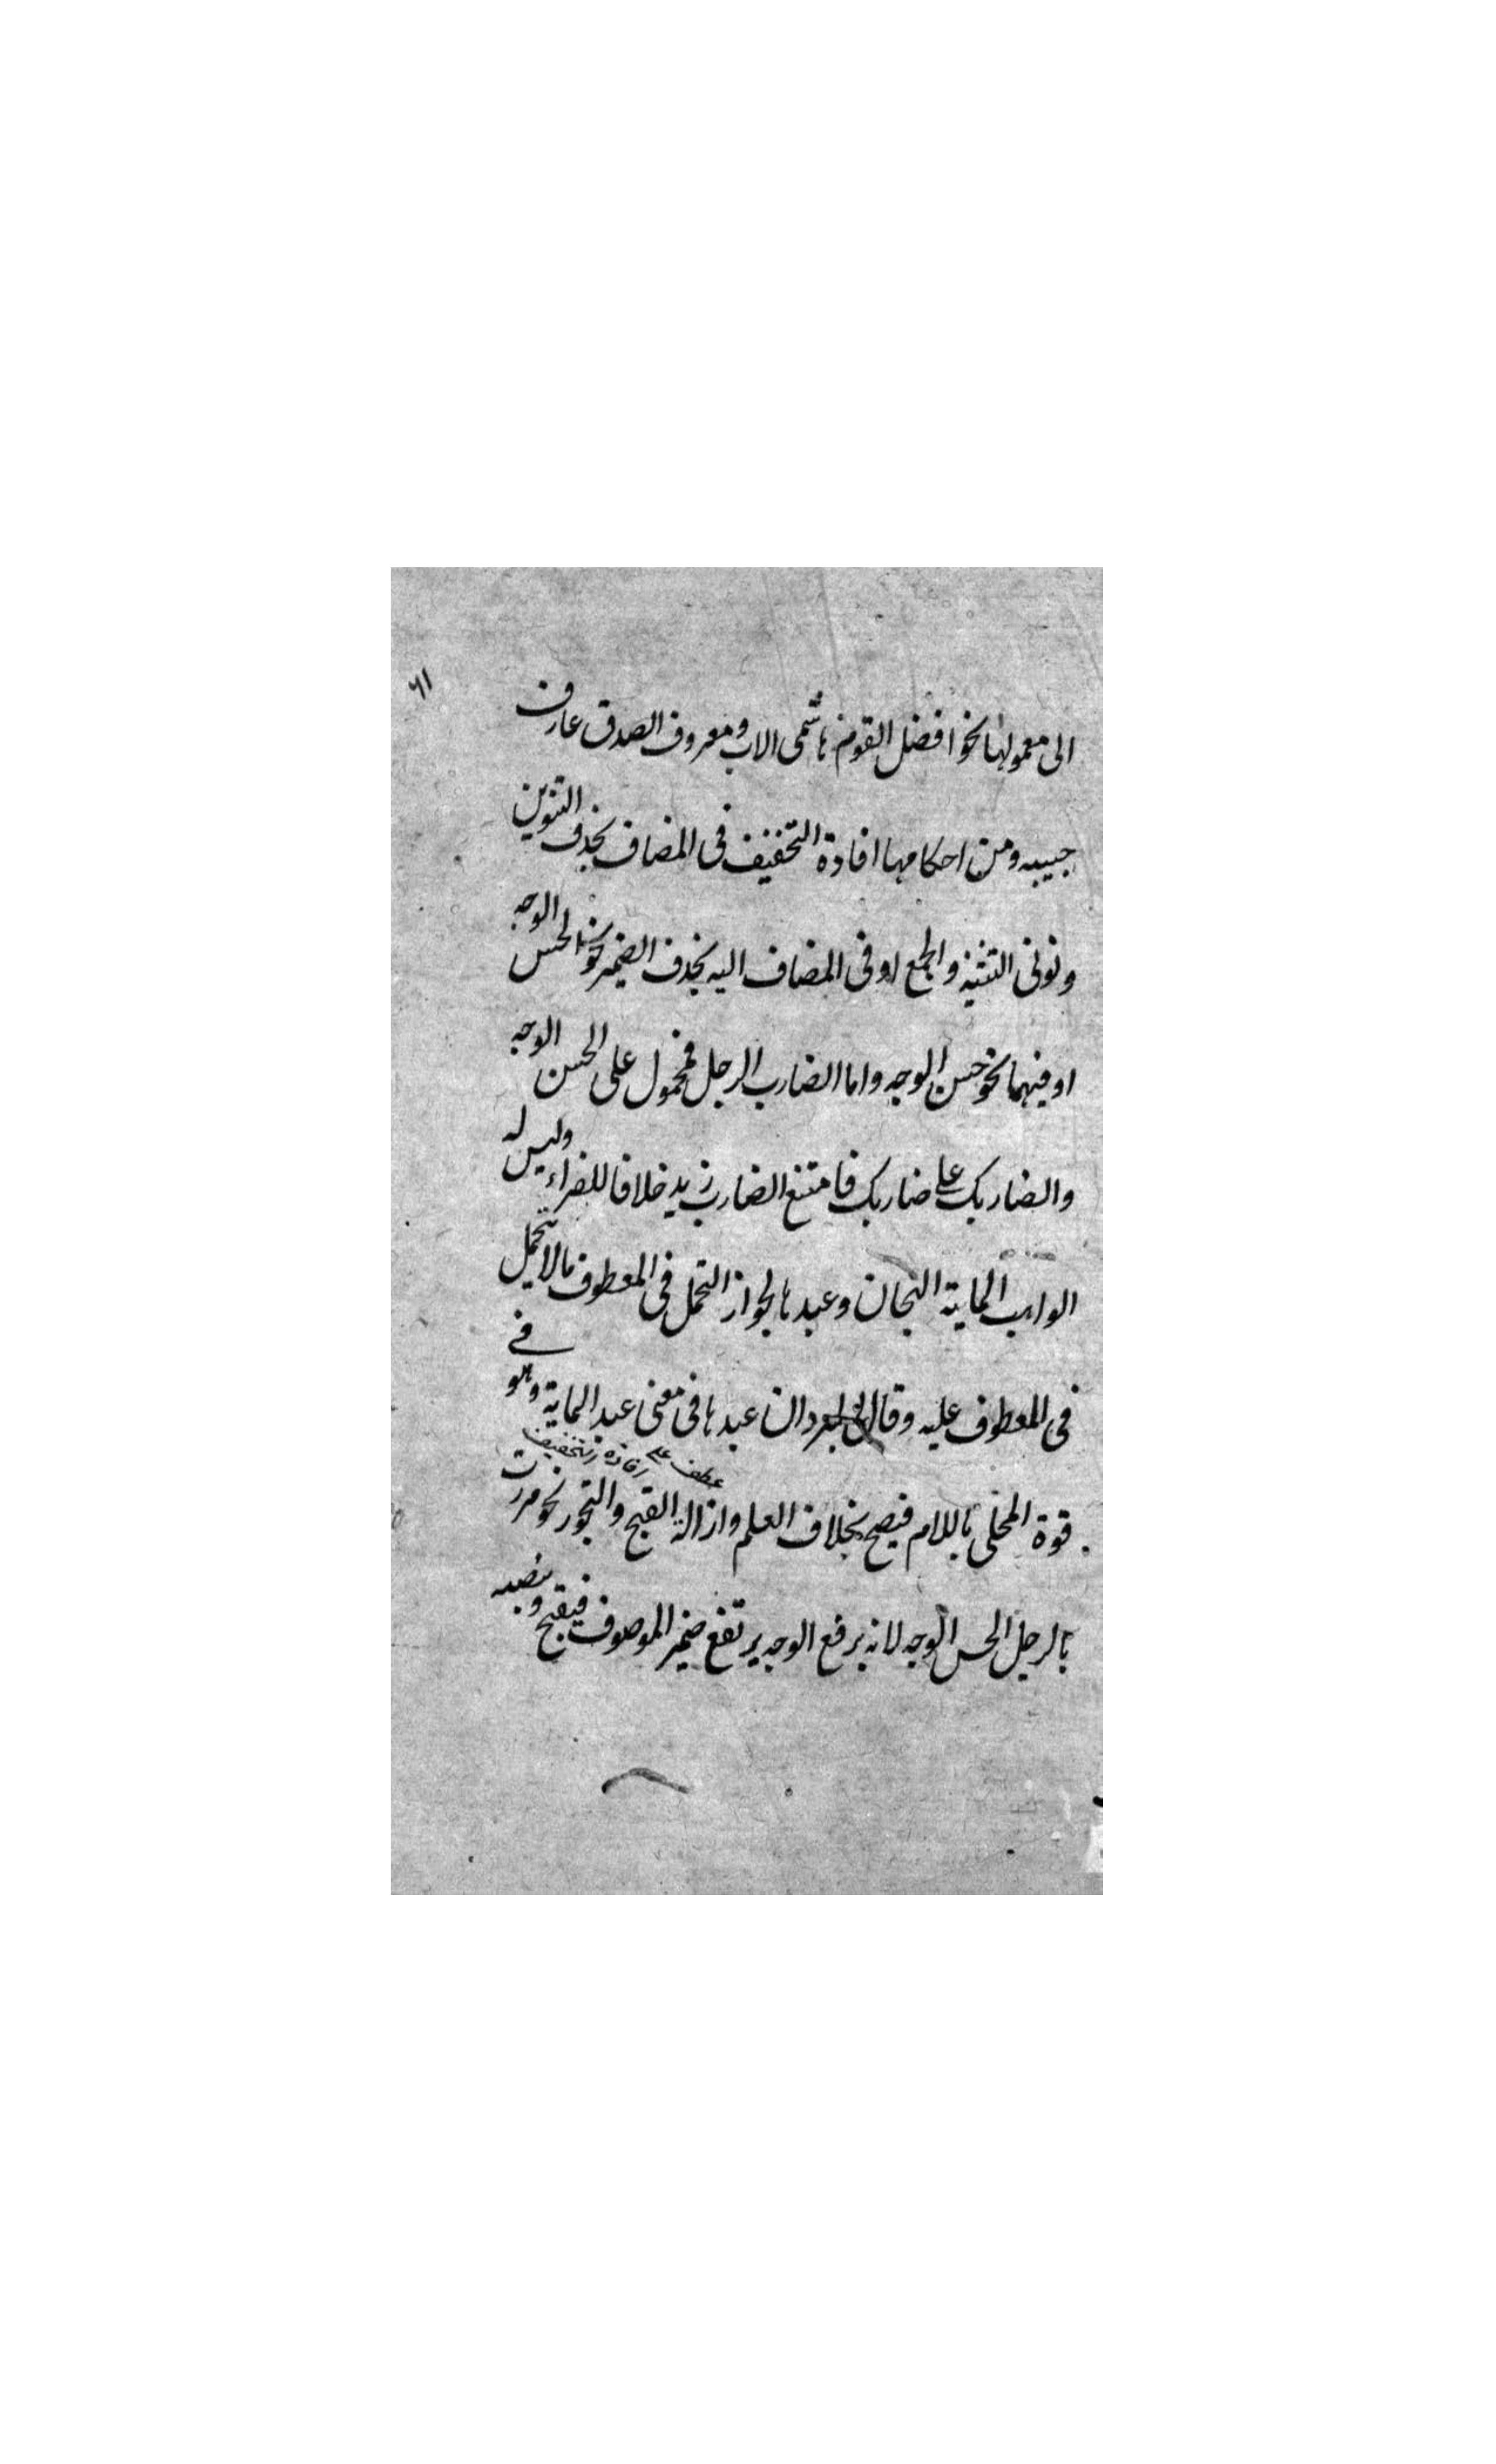 ٦١
الى معمولها نحو افضل القوم هاشمى الاب ومعروف الصدق عارف
حبيبه ومن احكامها افادة التخفيف فى المضاف بحذف التنوين
ونونى التثنية والجمع او فى المضاف اليه بحذف الضمير نحو الحسن الوجه
او فيهما نحو حسن الوجه واما الضارب الرجل فمحمول على الحسن الوجه
والضاربك على ضاربك فامتنع الضارب زيد خلافا للفراء وليس له
الواهب الماية الهجان وعبدها لجواز التحمل فى المعطوف مالا يتحمل
فى المعطوف عليه وقال المبرد ان عبدها فى معنى عبد الماية وهو فى
عطف على افادة التخفيف
قوة المحلى باللام فيصح بخلاف العلم وازالة القبح والتجوز نحو مررت
بالرجل الحسن الوجه لانه برفع الوجه يرتفع ضمير الموصوف فيقبح وبنصبه